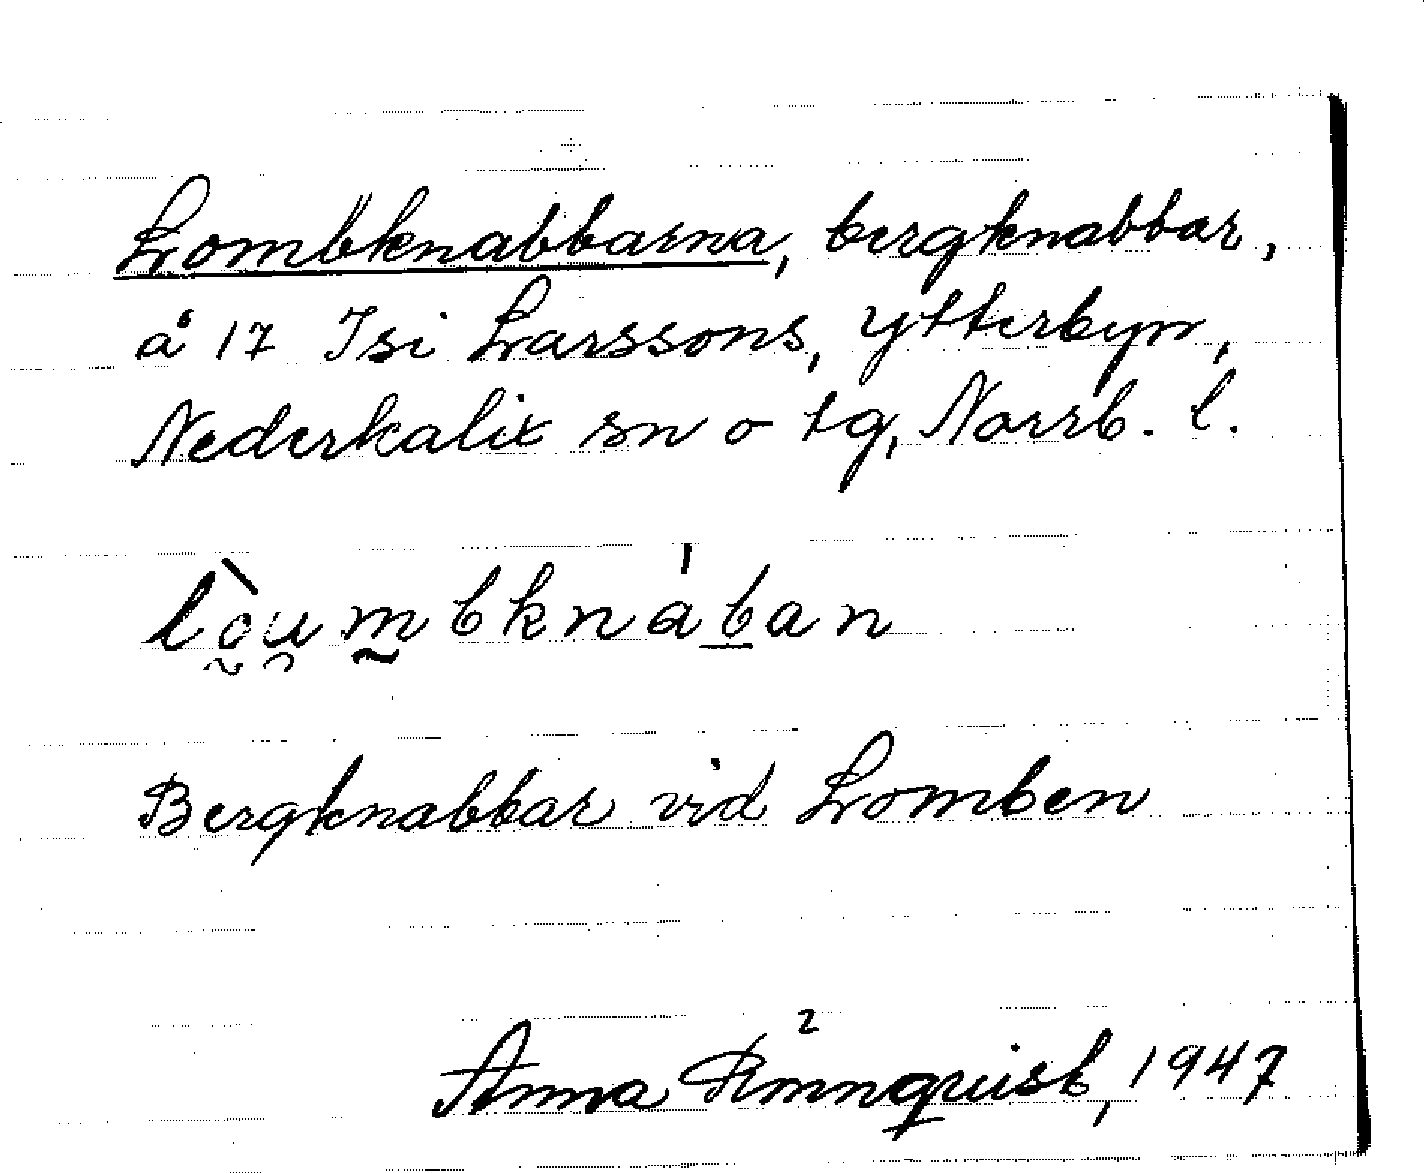 Lombknabbarna, bergknabbar,
å 17 Isi Larssons, Ytterbyn,
Nederkalix sn o tg, Norrb. l.
lòu̯m̰bknában
Bergknabbar vid Lomben
Anna Rönnquist, 1947